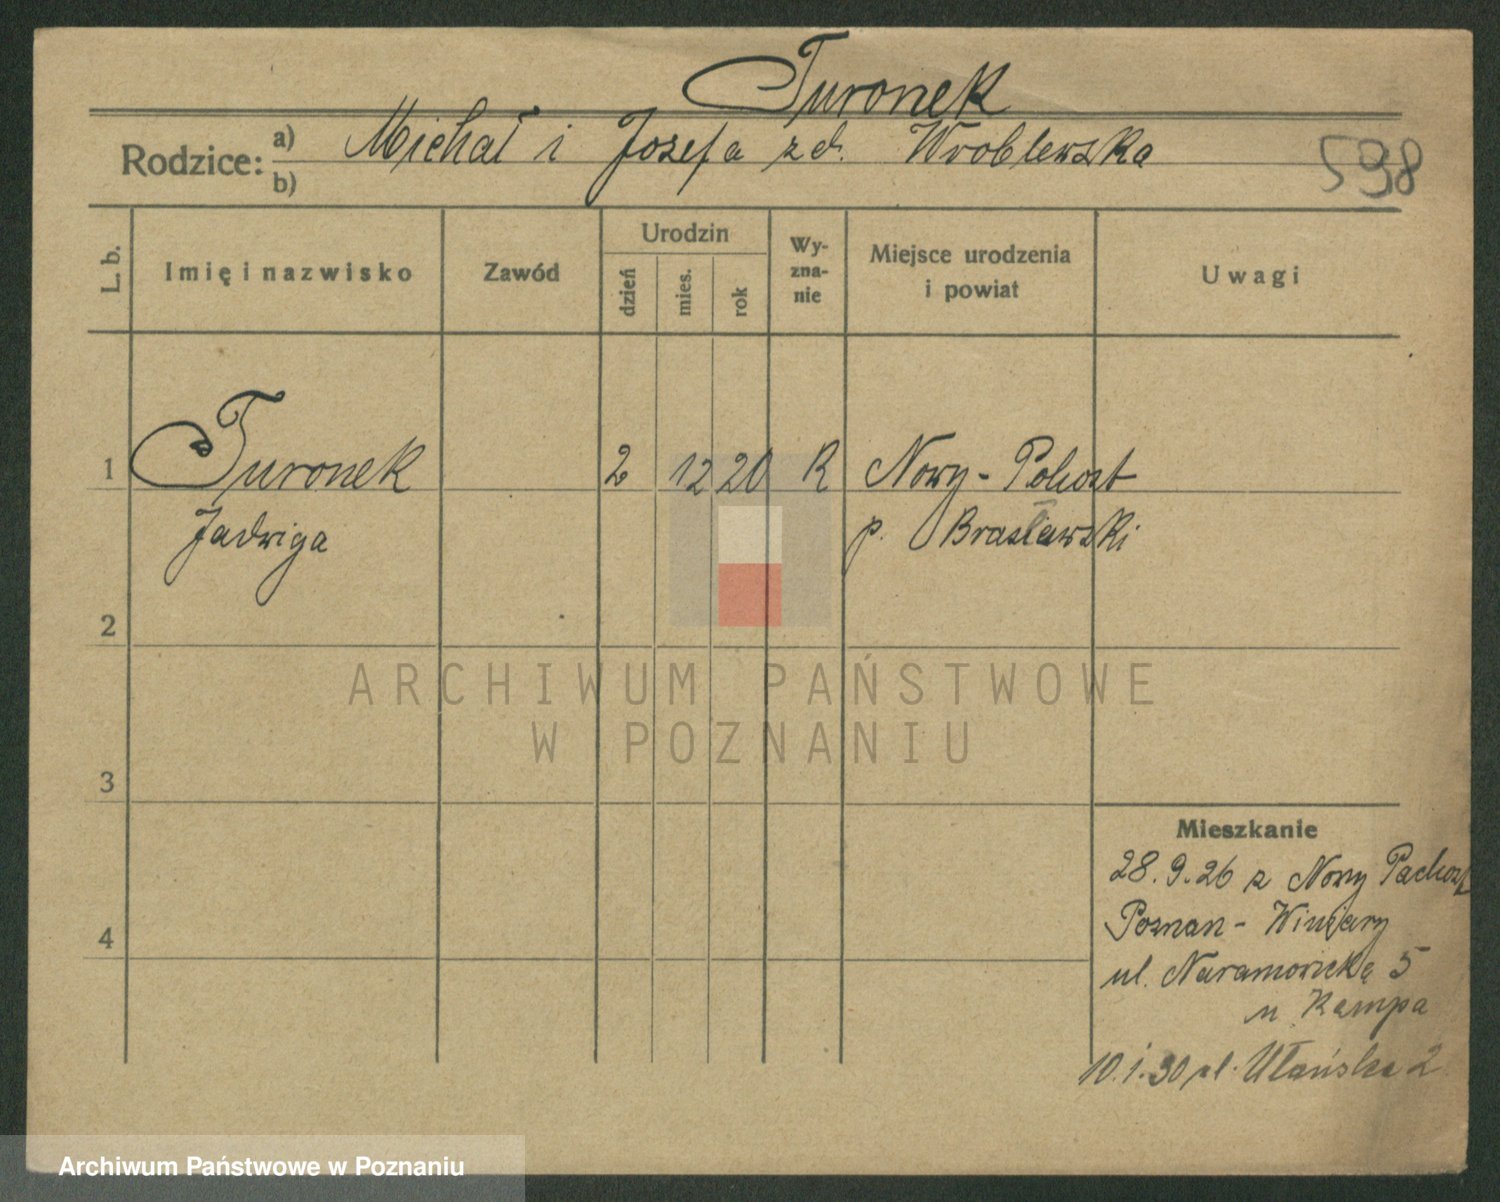 Turonek
Rodzice: a) Michał i Josefa z d. Wroblewska
b)
598
L. b.
Imię i nazwisko
Zawód
Urodzin
dzień
mies.
rok
Wy-
zna-
nie
Miejsce urodzenia
i powiat
Uwagi
1 Turonek 2 12 20 R Nowy - Pohost
Jadwiga p. Brasławski
2
3
4
Mieszkanie
28.9.26 z Nowy Pachost
Poznan - Winiary
ul. Naramowicka 5
u Kampa
10.1.30 ul. Ułańska 2
ARCHIWUM PAŃSTWOWE
W POZNANIU
Archiwum Państwowe w Poznaniu